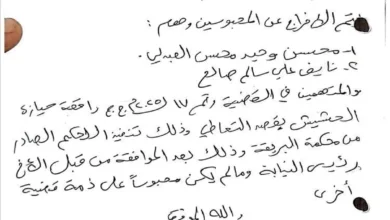 يتم الافراج عن المحبوسين وهم :
١- محسن وحيد محسن العبدلي .
٢- نايف علي سالم صالح
والمتهمين في القضية رقم ١٧ لسنة ٢٠٢٥م ج.ج رافقة حيازة
الحشيش بقصد التعاطي وذلك تنفيذ للحكم الصادر
من محكمة البريقة وذلك بعد الموافقة من قبل الأخ
رئيس النيابة ومالم يكن محبوساً على ذمة قضية
أخرى
والله الموفق